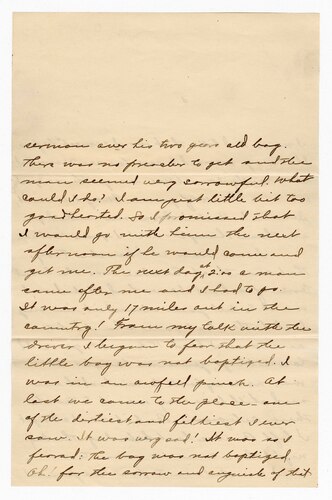 sermon over his two years old boy.
There was no preacher to get and the
man seemed very sorrowful. What
could I do? I am just little bit too
good herted. So I promissed that
I would go with him the next
afternoon if he would come and
get me. The next day at 2:10 a man
came after me and I had to go.
It was only 17 miles out in the
country! From my talk with the
driver I began to fear that the
little boy was not baptized. I
was in an awfull pinch. At
last we came to the place - one
of the dirtiest and filtiest I ever
saw. It was very sad! It was as I
feared: the boy was not baptized.
Oh! for the sorrow and anguish of that